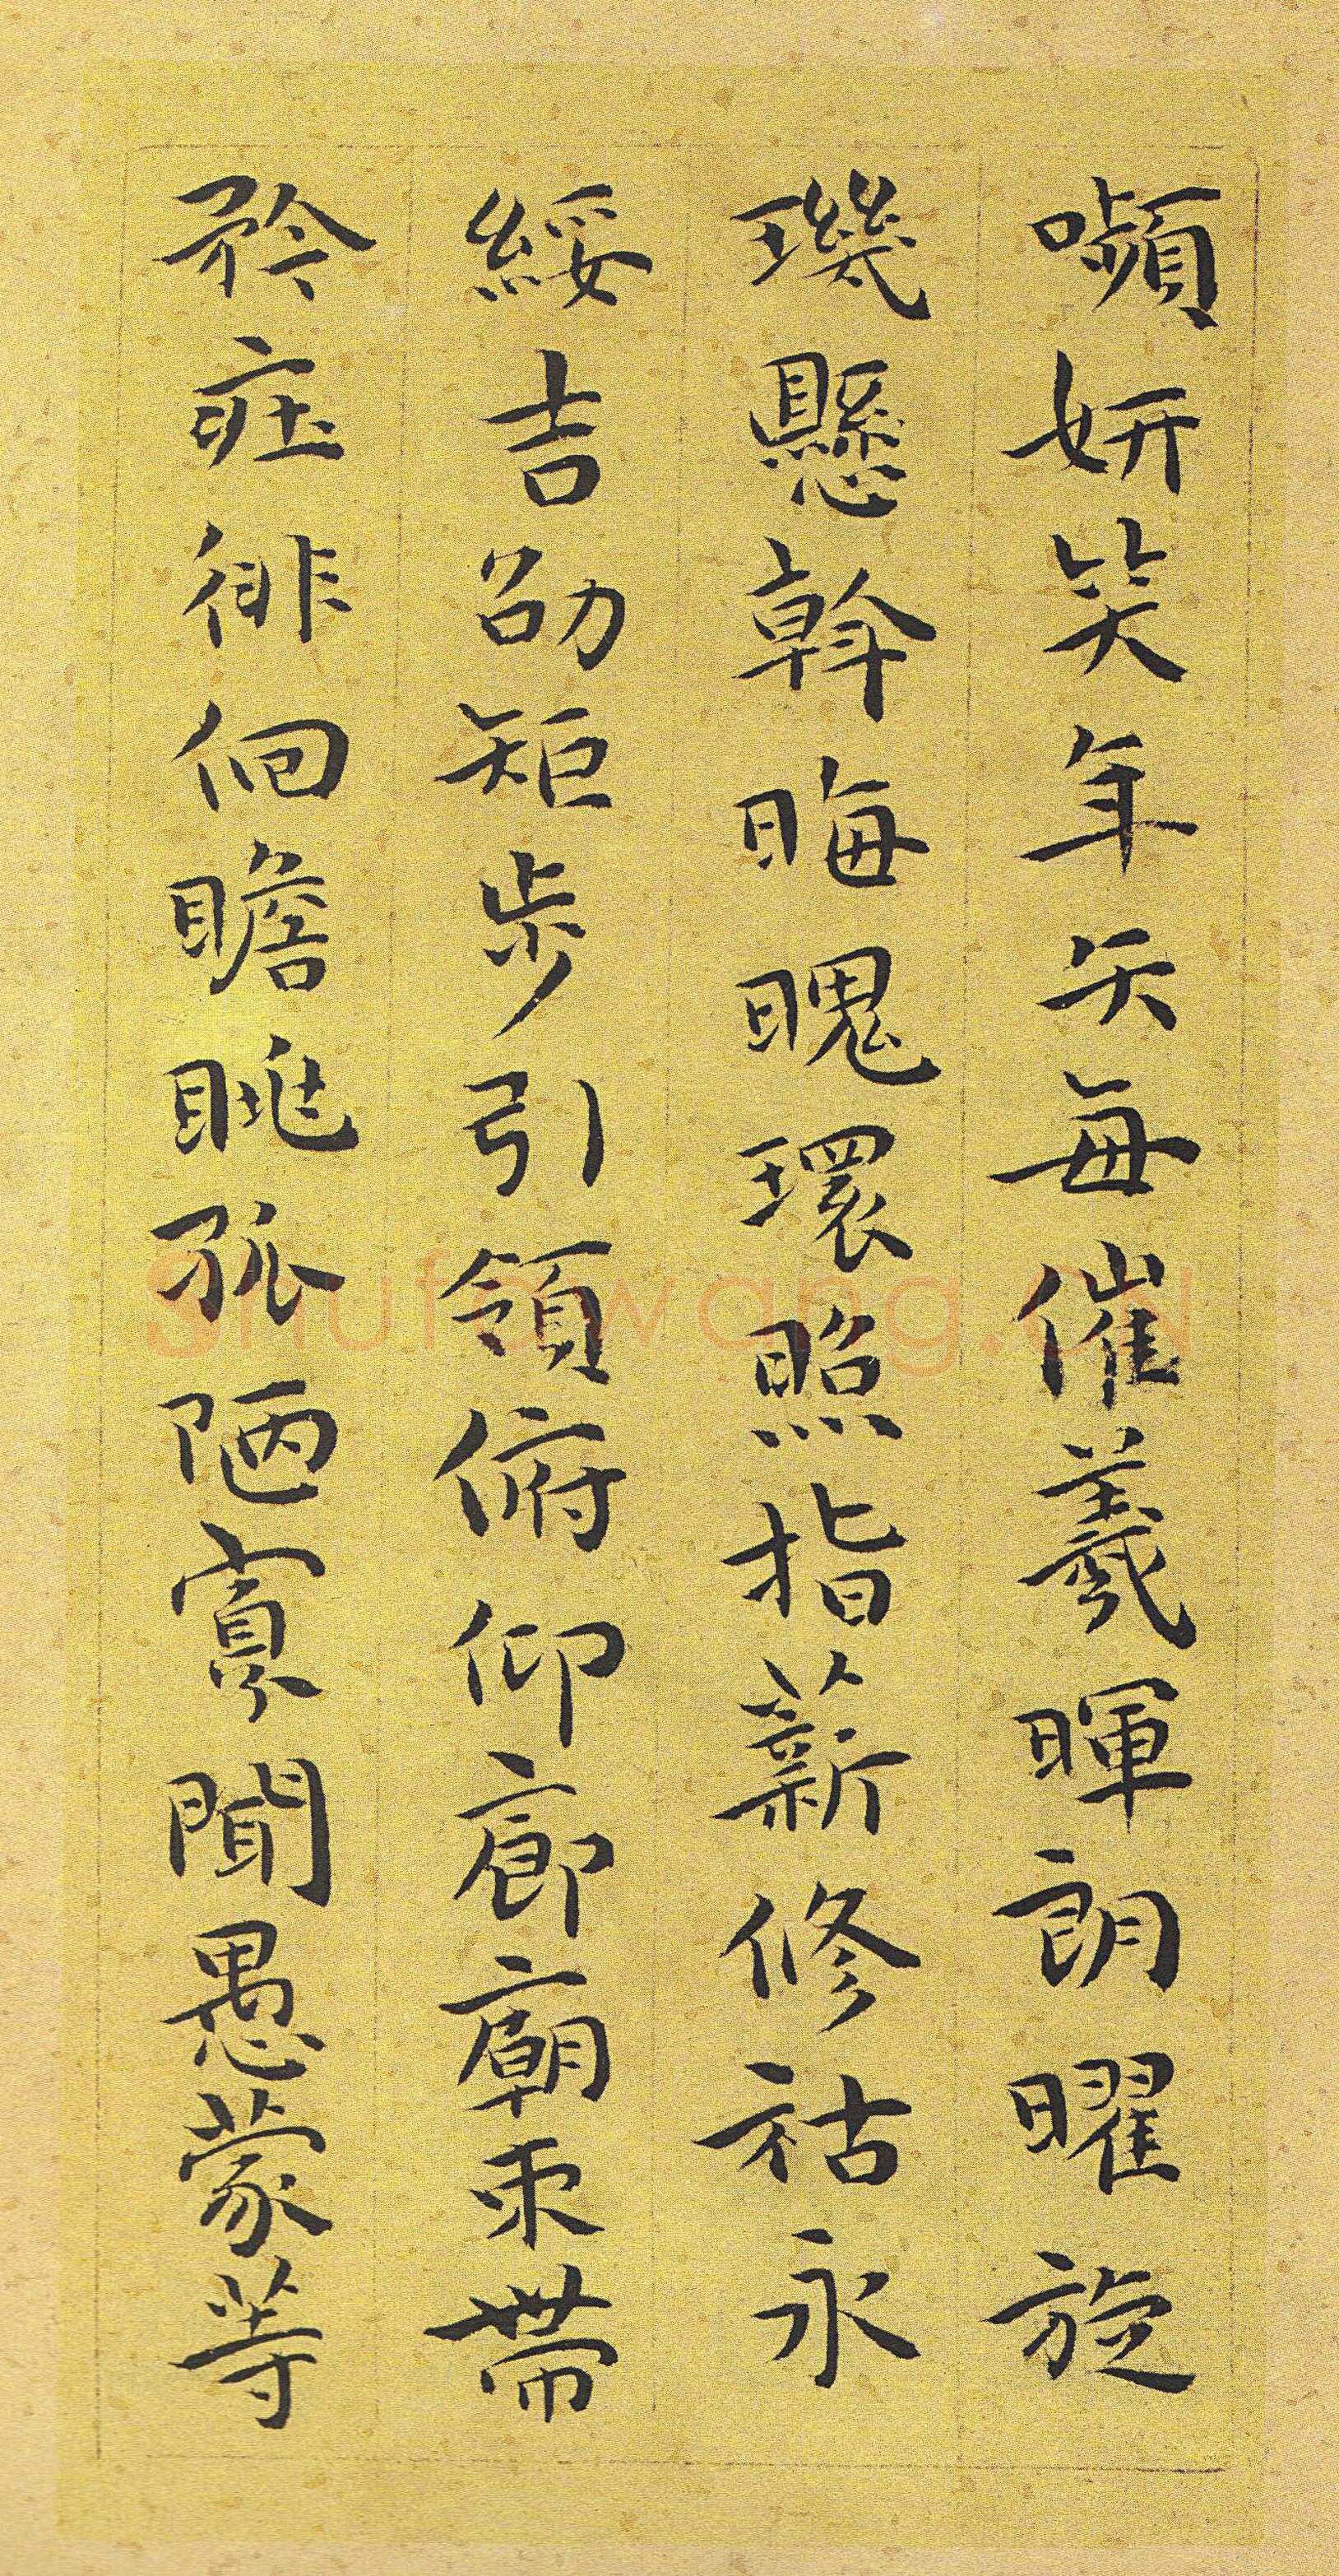 嚬妍笑年矢每催羲暉朗曜旋
璣懸斡晦魄環照指薪修祜永
綏吉劭矩步引領俯仰廊廟束帶
矜莊徘徊瞻眺孤陋寡聞愚蒙等
Shufawang.CN